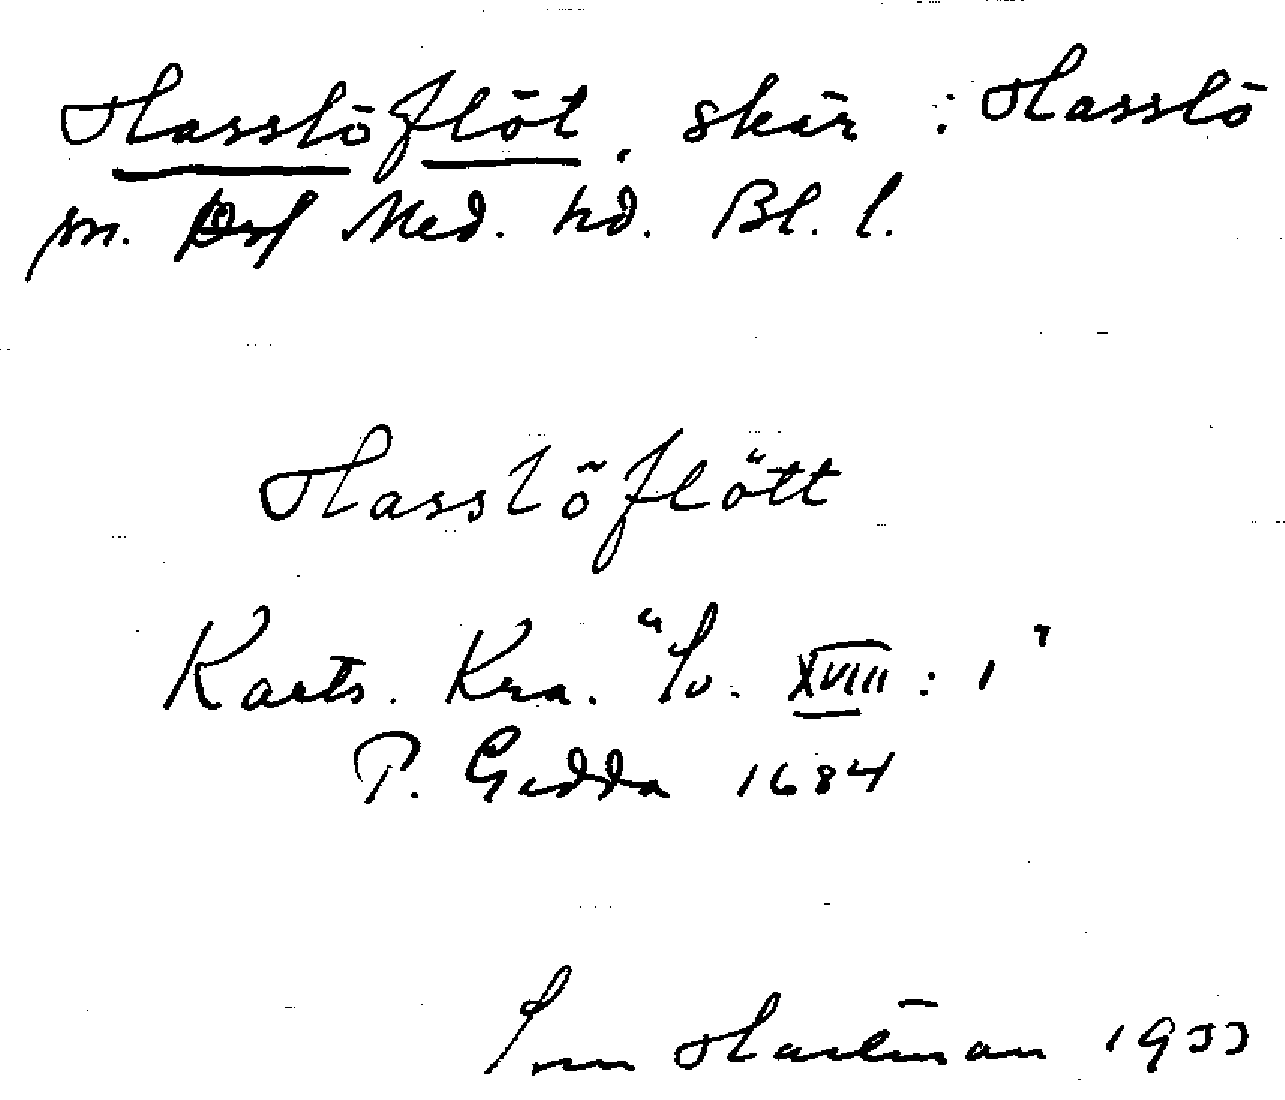 Hasslöflöt, skär : Hasslö
sn. Med. hd. Bl. l.
Hasslöflött
Karts. Kra. "Sv. XVIII : 1"
P. Gedda 1684
Hartman 1933